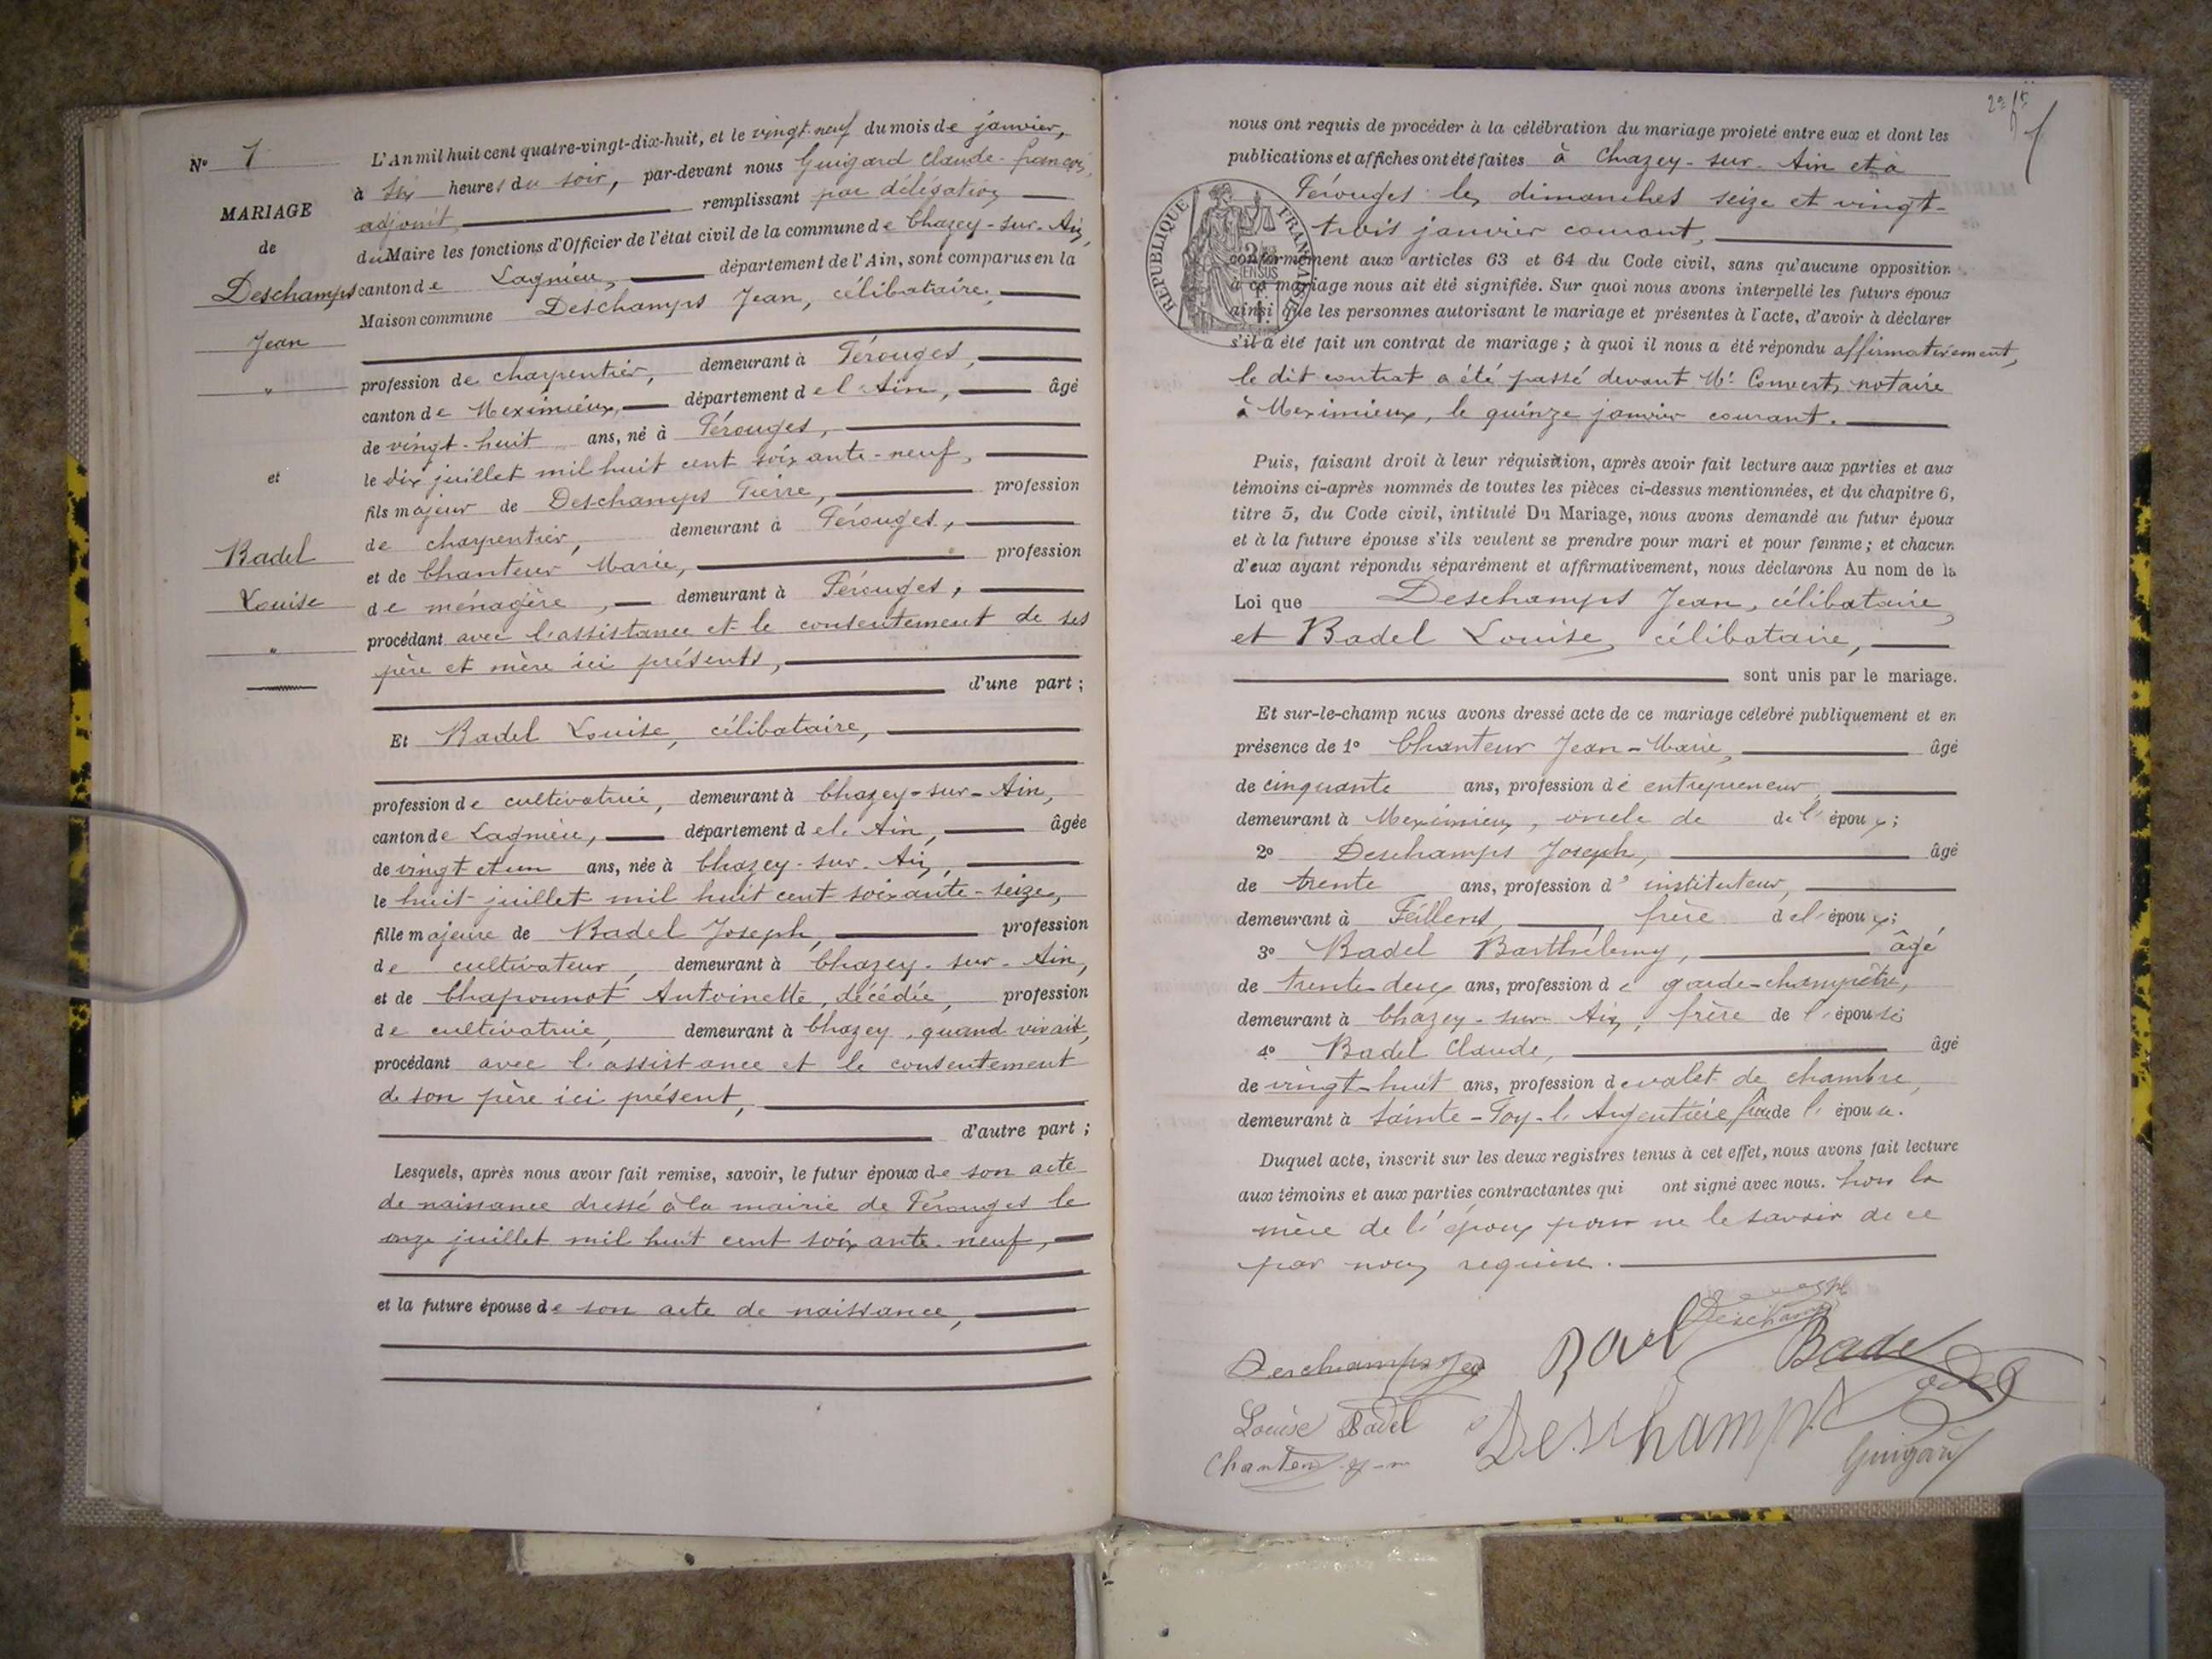 N° 1
MARIAGE
de
Deschamps
Jean
"
et
Badel
Louise
"
L'An mil huit cent quatre-vingt-dix-huit, et le vingt-neuf du mois de janvier,
à six heures du soir, par-devant nous Guigard Claude-françois,
adjoint, remplissant par délégation
du Maire les fonctions d'Officier de l'état civil de la commune de Chazey-sur-Ain,
canton de Lagnieu, département de l'Ain, sont comparus en la
Maison commune Deschamps Jean, célibataire,
profession de charpentier, demeurant à Pérouges,
canton de Meximieux, département de l'Ain, âgé
de vingt-huit ans, né à Pérouges,
le dix juillet mil huit cent soixante-neuf,
fils majeur de Deschamps Pierre, profession
de charpentier, demeurant à Pérouges,
et de Chanteur Marie, profession
de ménagère, demeurant à Pérouges,
procédant avec l'assistance et le consentement de ses
père et mère ici présents,
d'une part ;
Et Badel Louise, célibataire,
profession de cultivatrice, demeurant à Chazey-sur-Ain,
canton de Lagnieu, département de l'Ain, âgée
de vingt et un ans, née à Chazey-sur-Ain,
le huit juillet mil huit cent soixante-seize,
fille majeure de Badel Joseph, profession
de cultivateur, demeurant à Chazey-sur-Ain,
et de Chaponnot Antoinette, décédée, profession
de cultivatrice, demeurant à Chazey, quand vivait,
procédant avec l'assistance et le consentement
de son père ici présent,
d'autre part ;
Lesquels, après nous avoir fait remise, savoir, le futur époux de son acte
de naissance dressé à la mairie de Pérouges le
onze juillet mil huit cent soixante-neuf,
et la future épouse de son acte de naissance,
nous ont requis de procéder à la célébration du mariage projeté entre eux et dont les
publications et affiches ont été faites à Chazey-sur-Ain et à
Pérouges les dimanches seize et vingt-
trois janvier courant,
RÉPUBLIQUE FRANÇAISE
conformément aux articles 63 et 64 du Code civil, sans qu'aucune opposition
à ce mariage nous ait été signifiée. Sur quoi nous avons interpellé les futurs époux
ainsi que les personnes autorisant le mariage et présentes à l'acte, d'avoir à déclarer
s'il a été fait un contrat de mariage ; à quoi il nous a été répondu affirmativement,
le dit contrat a été passé devant Me Convert, notaire
à Meximieux, le quinze janvier courant.
Puis, faisant droit à leur réquisition, après avoir fait lecture aux parties et aux
témoins ci-après nommés de toutes les pièces ci-dessus mentionnées, et du chapitre 6,
titre 5, du Code civil, intitulé Du Mariage, nous avons demandé au futur époux
et à la future épouse s'ils veulent se prendre pour mari et pour femme ; et chacun
d'eux ayant répondu séparément et affirmativement, nous déclarons Au nom de la
Loi que Deschamps Jean, célibataire,
et Badel Louise, célibataire,
sont unis par le mariage.
Et sur-le-champ nous avons dressé acte de ce mariage célébré publiquement et en
présence de 1° Chanteur Jean-Marie, âgé
de cinquante ans, profession de entrepreneur,
demeurant à Meximieux, oncle de de l'époux ;
2° Deschamps Joseph, âgé
de trente ans, profession d'instituteur,
demeurant à Feillens, frère de l'époux ;
3° Badel Barthélemy, âgé
de trente-deux ans, profession de garde-champêtre,
demeurant à Chazey-sur-Ain, frère de l'épouse ;
4° Badel Claude, âgé
de vingt-huit ans, profession de valet de chambre,
demeurant à Sainte-Foy-l'Argentière frère de l'épouse.
Duquel acte, inscrit sur les deux registres tenus à cet effet, nous avons fait lecture
aux témoins et aux parties contractantes qui ont signé avec nous. hors la
mère de l'époux pour ne le savoir de ce
par nous requise.
Deschamps
Deschamps Jean
Badel
Badel
Louise Badel
Deschamps
Chanteur J-M
Guigard